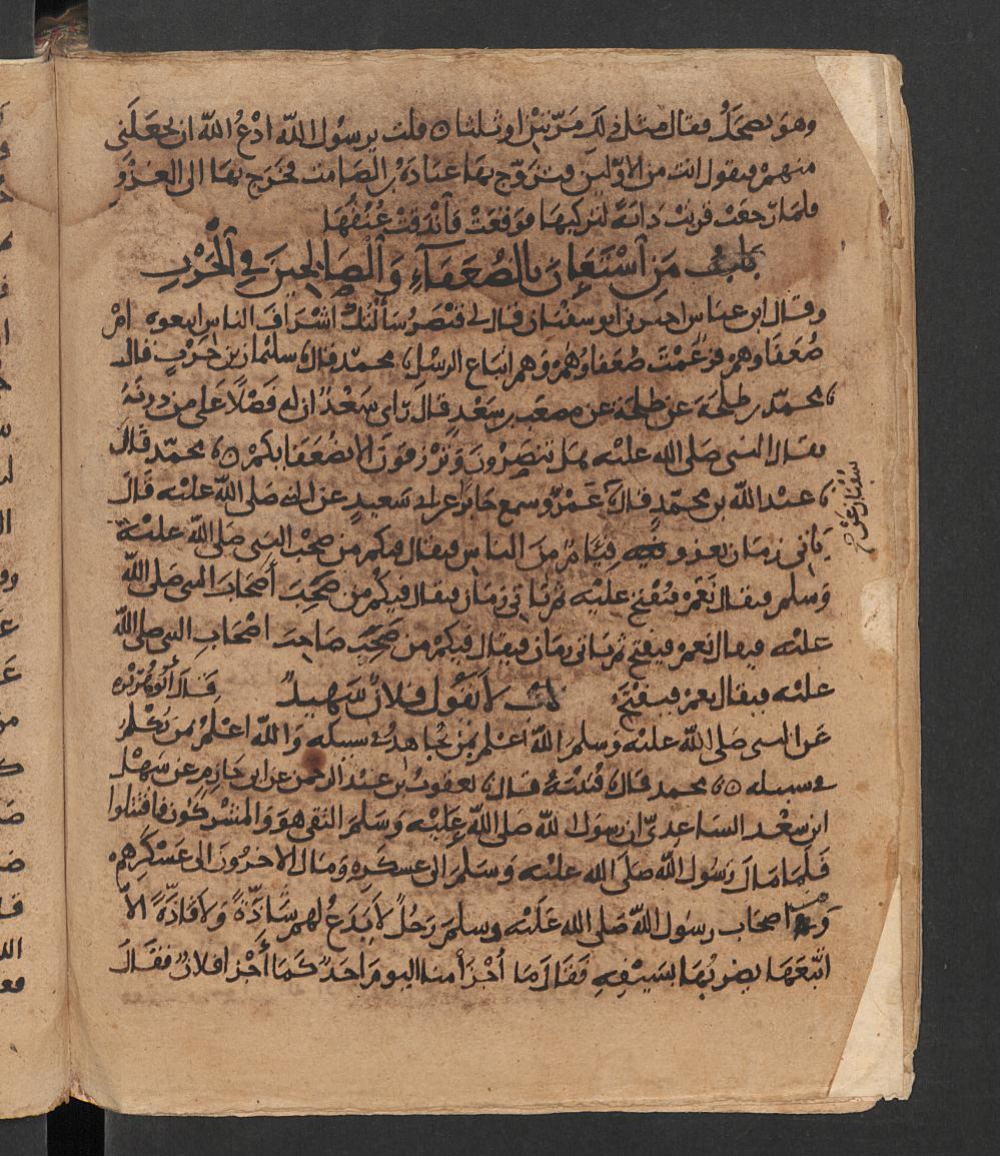 وهو يضحك فقال مثل ذلك مرتين او ثلثا ٥ قلت يرسول الله ادع الله ان يجعلني
منهم فيقول انت من الاولين فتزوج بها عبادة بن الصامت فخرج بها الى الغزو
فلما رجعت قربت دابة لتركبها فوقعت فاندقت عنقها
باب من استعان بالضعفاء والصالحين في الحرب
وقال ابن عباس اخبرني ابو سفيان قال لي قيصر سألتك اشراف الناس اتبعوه ام
ضعفاوهم فزعمت ضعفاوهم وهم اتباع الرسل محمد قال سليمان بن حرب قال
محمد بن طلحة عن طلحة عن مصعب بن سعد قال راى سعد ان له فضلا على من دونه
فقال النبي صلى الله عليه هل تنصرون وترزقون الا بضعفايكم ٥ محمد قال
عبد الله بن محمد قال عمرو سمع جابرا عن ابي سعيد عن النبي صلى الله عليه قال
سفيان عن
ياتي زمان يغزو فيه فيام من الناس فيقال فيكم من صحب النبي صلى الله عليه
وسلم فيقال نعم فيفتح عليه ثم ياتي زمان فيقال فيكم من صحب أصحاب النبي صلى الله
عليه فيقال نعم فيفتح ثم ياتي زمان فيقال فيكم من صحب صاحب اصحاب النبي صلى الله
عليه فيقال نعم فيفتح باب لا يقول فلان شهيد قال أبو هريرة
عن النبي صلى الله عليه وسلم الله اعلم بمن يجاهد في سبيله والله اعلم بمن يكلم
في سبيله ٥ محمد قال قتيبة قال يعقوب بن عبد الرحمن عن ابي حازم عن سهل
ابن سعد الساعدي ان رسول الله صلى الله عليه وسلم التقى هو والمشركون فاقتتلوا
فلما مال رسول الله صلى الله عليه وسلم الى عسكره ومال الاخرون الى عسكرهم
وفي اصحاب رسول الله صلى الله عليه وسلم رجل لا يدع لهم شاذة ولا فاذة الا
اتبعها يضربها بسيفه فقال ما أجزأ منا اليوم احد كما أجزا فلان فقال